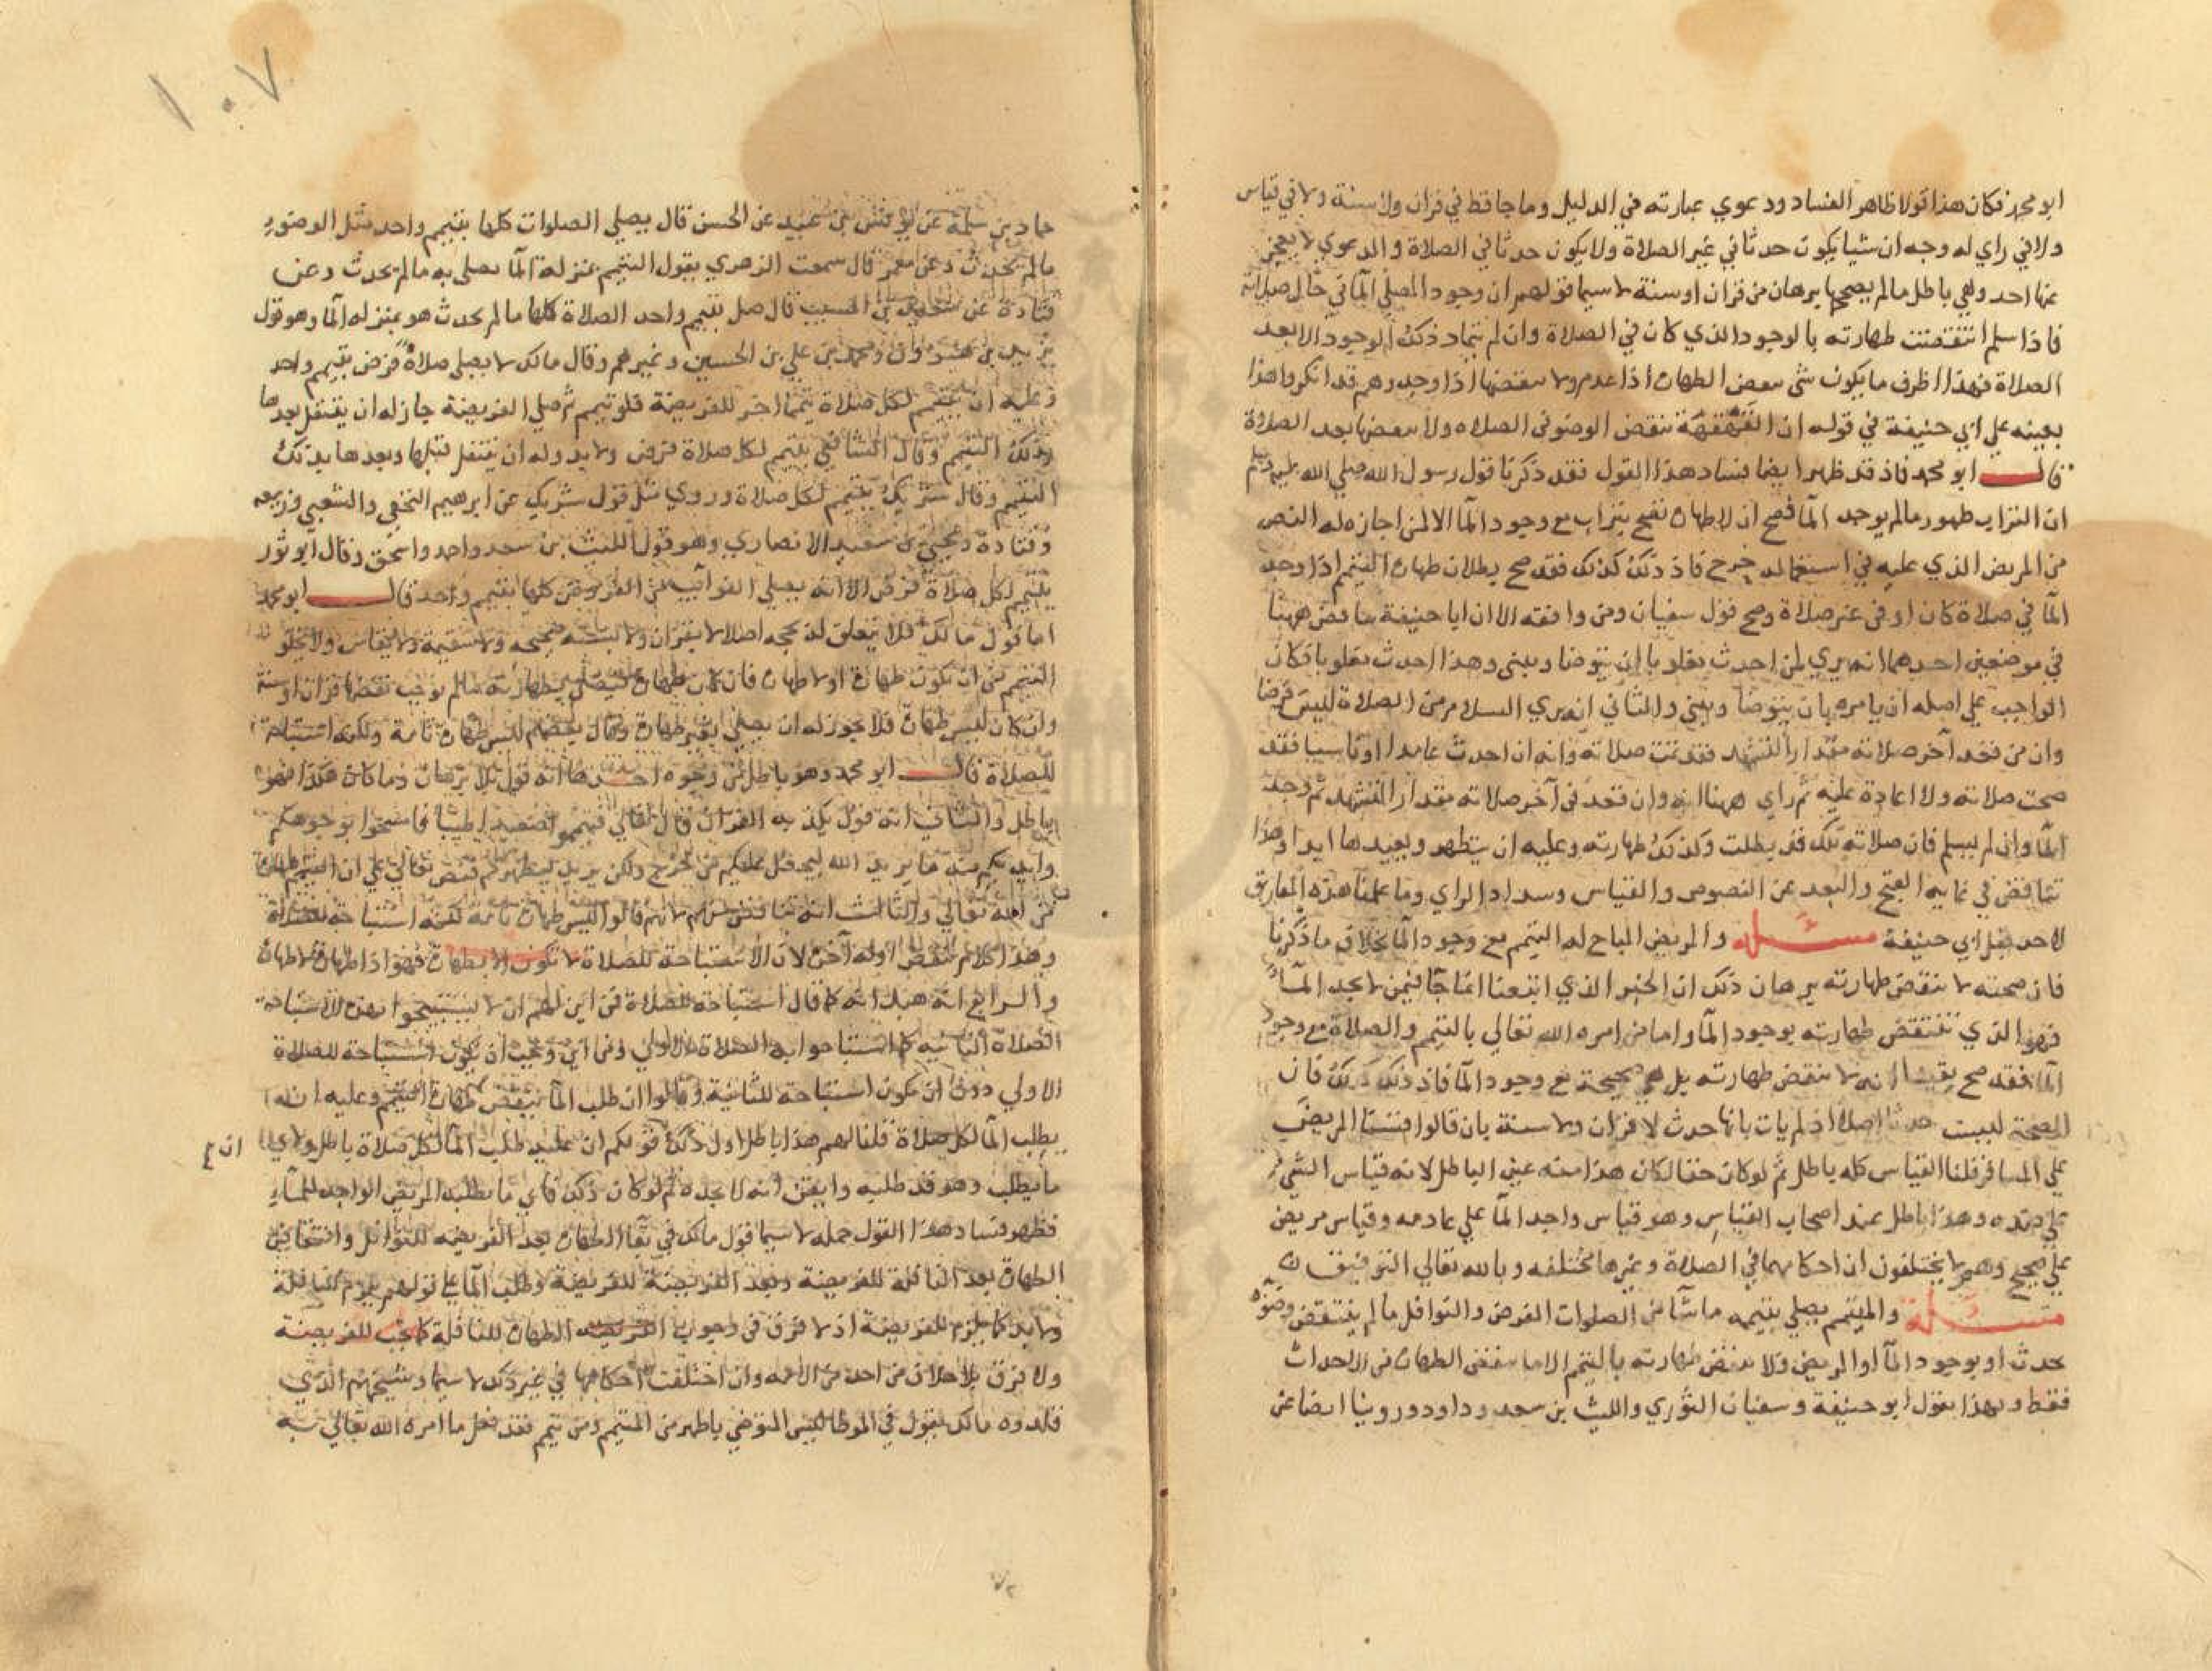 ابو محمد فكان هذا قولا ظاهر الفساد ودعوي عبارته في الدليل وما جا قط في قران ولا سنة ولا في قياس
ولا في راي له وجه ان شيا يكون حدثا في غير الصلاة ولا يكون حدثا في الصلاة والدعوي لا يعجز
عنها احد وهي باطل ما لم يصححها برهان من قران او سنة لا سيما قولهم ان وجود المصلي الما في حال صلاته
فاذا سلم انتقضت طهارته بالوجود الذي كان في الصلاة وان لم يتماد ذلك الوجود الا بعد
الصلاة فهذا اظرف ما يكون شي ينقض الطهارة اذا عدم ولا ينقضها اذا وجد وهم قد انكروا هذا
بعينه علي ابي حنيفة في قوله ان القهقهة تنقض الوضو في الصلاه ولا تنقضها بعد الصلاة
قال ابو محمد فاذ قد ظهر ايضا فساد هذا القول فقد ذكرنا قول رسول الله صلي الله عليه وسلم
ان التراب طهور ما لم يوجد الما فصح ان لا طهارة تصح بتراب مع وجود الما الا لمن اجازه له النص
من المريض الذي عليه في استعماله حرج فاذ ذلك كذلك فقد صح بطلان طهارة التيمم اذا وجد
الما في صلاة كان او في غير صلاة وصح قول سفيان ومن وافقه الا ان ابا حنيفة تناقض ههنا
في موضعين احدهما انه يري لمن احدث مغلوبا ان يتوضا ويبني وهذا احدث مغلوبا فكان
الواجب علي اصله ان يامره بان يتوضا ويبني والثاني انه يري السلام من الصلاة ليس فرضا
وان من قعد آخر صلاته مقدار التشهد فقد تمت صلاته وانه ان احدث عامدا او ناسيا فقد
صحت صلاته ولا اعادة عليه ثم راي ههنا انه وان قعد في آخر صلاته مقدار التشهد ثم وجد
الما وان لم يسلم فان صلاته تلك قد بطلت وكذلك طهارته وعليه ان يتطهر ويعيدها ابدا وهذا
تناقض في غاية القبح والبعد عن النصوص والقياس وسداد الراي وما علمنا هذه التفاريق
لاحد قبل ابي حنيفة مسئلة والمريض المباح له التيمم مع وجود الما بخلاف ما ذكرنا
فان صحته لا تنقض طهارته برهان ذلك ان الخبر الذي اتبعنا انما جا فيمن لا يجد المآ
فهو الذي تنتقض طهارته بوجود الما واما من امره الله تعالي بالتيمم والصلاة مع وجود
الما فقد صح يقينا انه لا ينقض طهارته بل هي صحيحة مع وجود الما فاذ ذلك كذلك فان
الصحة ليست حدثا اصلا اذ لم يات بانها حدث لا قران ولا سنة بان قالوا قسنا المريض
علي المسافر قلنا القياس كله باطل ثم لو كان حقا لكان هذا منه عين الباطل لانه قياس الشي
علي ضده وهذا باطل عند اصحاب القياس وهو قياس واجد الما علي عادمه وقياس مريض
علي صحيح وهم لا يختلفون ان احكامهما في الصلاة وغيرها مختلفه وبالله تعالي التوفيق
مسئلة والمتيمم يصلي بتيممه ما شا من الصلوات الفرض والنوافل ما لم ينتقض وضوه
بحدث او بوجود المآ او المريض ولا ينقض طهارته بالتيمم الا ما ينقض الطهارة من الاحداث
فقط وبهذا يقول ابو حنيفة وسفيان الثوري والليث بن سعد وداود وروينا ايضا عن
١٠٧
حماد بن سلمة عن يونس بن عبيد عن الحسن قال يصلي الصلوات كلها بتيمم واحد مثل الوضوء
ما لم يحدث وعن معمر قال سمعت الزهري يقول التيمم بمنزلة الما يصلي به ما لم يحدث وعن
قتادة عن سعيد بن المسيب قال صل بتيمم واحد الصلاة كلها ما لم يحدث هو بمنزله الما وهو قول
يزيد بن هرون ومحمد بن علي بن الحسين وغيرهم وقال مالك لا يصلي صلاة فرض بتيمم واحد
وعليه ان يتيمم لكل صلاة تيمما اخر للفريضة فلو تيمم ثم صلي الفريضة جاز له ان يتنفل بعدها
بذلك التيمم وقال الشافعي يتيمم لكل صلاة فرض ولا بد وله ان يتنفل قبلها وبعدها بذلك
التيمم وقال شريك يتيمم لكل صلاة وروي مثل قول شريك عن ابرهيم النخعي والشعبي وربيعه
وقتادة ويحيي بن سعيد الانصاري وهو قول الليث بن سعد واحمد واسحق وقال ابو ثور
يتيمم لكل صلاة فرض الا انه يصلي الفوآيت من الفروض كلها بتيمم واحد قال ابو محمد
اما قول مالك فلا يتعلق له بحجه اصلا لا بقران ولا بسنه صحيحه ولا سقيمة ولا بقياس ولا يخلو
التيمم من ان يكون طهارة او لا طهارة فان كان طهارة فيصلي بطهارته ما لم يوجب نقضها قران او سنة
وان كان ليس طهارة فلا يجوز له ان يصلي بغير طهارة وقال بعضهم ليس طهارة تامة ولكنه استباحة
للصلاة قال ابو محمد وهو باطل من وجوه احدها انه قول بلا برهان وما كان هكذا فهو
باطل والثاني انه قول يكذبه القران قال تعالي فتيمموا صعيدا طيبا فامسحوا بوجوهكم
وايديكم منه ما يريد الله ليجعل عليكم من حرج ولكن يريد ليطهركم فنص تعالي علي ان التيمم طهارة
من الله تعالي والثالث انه تناقض منهم لانهم قالوا ليس طهارة تامة لكنه استباحة للصلاة
وهذا كلام ينقض اوله آخره لان الاستباحة للصلاة لا تكون الا بطهارة فهو اذا طهارة لا طهارة
والرابع انه هبك انه كما قال استباحة للصلاة فمن اين لهم ان لا يستبيحوا بهذه الاستباحة
الصلاة الثانيه كما استباحوا به الصلاة الاولي ومن اين وجب ان يكون استباحة للصلاة
الاولي دون ان يكون استباحة للثانية وقالوا ان طلب الما ينقض طهارة المتيمم وعليه ان
يطلب الما لكل صلاة قلنا لهم هذا باطل اول ذلك قولكم ان عليه طلب الما لكل صلاة باطل ولاي
ما يطلب وهو قد طلبه وايقن انه لا يجده ثم لو كان ذلك فاي ما يطلبه المريض الواجد للمآ
فظهر فساد هذا القول جمله لا سيما قول مالك في بقا الطهارة بعد الفريضه للنوافل وانتقاض
الطهارة بعد النافلة للفريضة وبعد الفريضة للفريضة وطلب الما علي قولهم يلزم للنافلة
ولا بد كما يلزم للفريضة اذ لا فرق في وجوب الطهارة للنافلة كما تجب للفريضة
ولا فرق بلا خلاف من احد من الامه وان اختلفت احكامهما في غير ذلك لا سيما وشيخهم الذي
قلدوه مالك يقول في الموطا ليس المتوضي باطهر من المتيمم ومن تيمم فقد فعل ما امره الله تعالي به